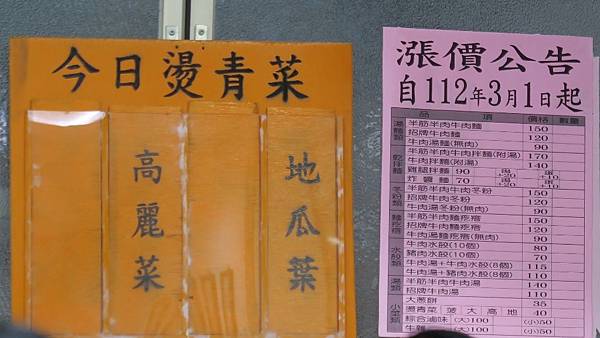 今日燙青菜
地瓜葉
高麗菜
漲價公告
自112年3月1日起
品項 價格 數量
湯麵類
半筋半肉牛肉麵 150
招牌牛肉麵 120
牛肉湯麵(無肉) 90
乾拌麵
半筋半肉牛肉拌麵(附湯) 170
牛肉拌麵(附湯) 140
雞腿拌麵 90
炸醬麵 70
冬粉類
半筋半肉牛肉冬粉 150
招牌牛肉冬粉 120
牛肉湯冬粉(無肉) 90
麵疙瘩
半筋半肉麵疙瘩 150
招牌牛肉麵疙瘩 120
牛肉湯麵疙瘩(無肉) 90
水餃類
牛肉水餃(10個) 80
豬肉水餃(10個) 70
牛肉湯+牛肉水餃(8個) 115
牛肉湯+豬肉水餃(8個) 110
湯類
半筋半肉牛肉湯 140
招牌牛肉湯 110
小菜類
大蔥餅 35
燙青菜 菠 大 高 地 40
綜合滷味 (大)100 (小)50
(大)100 (小)50